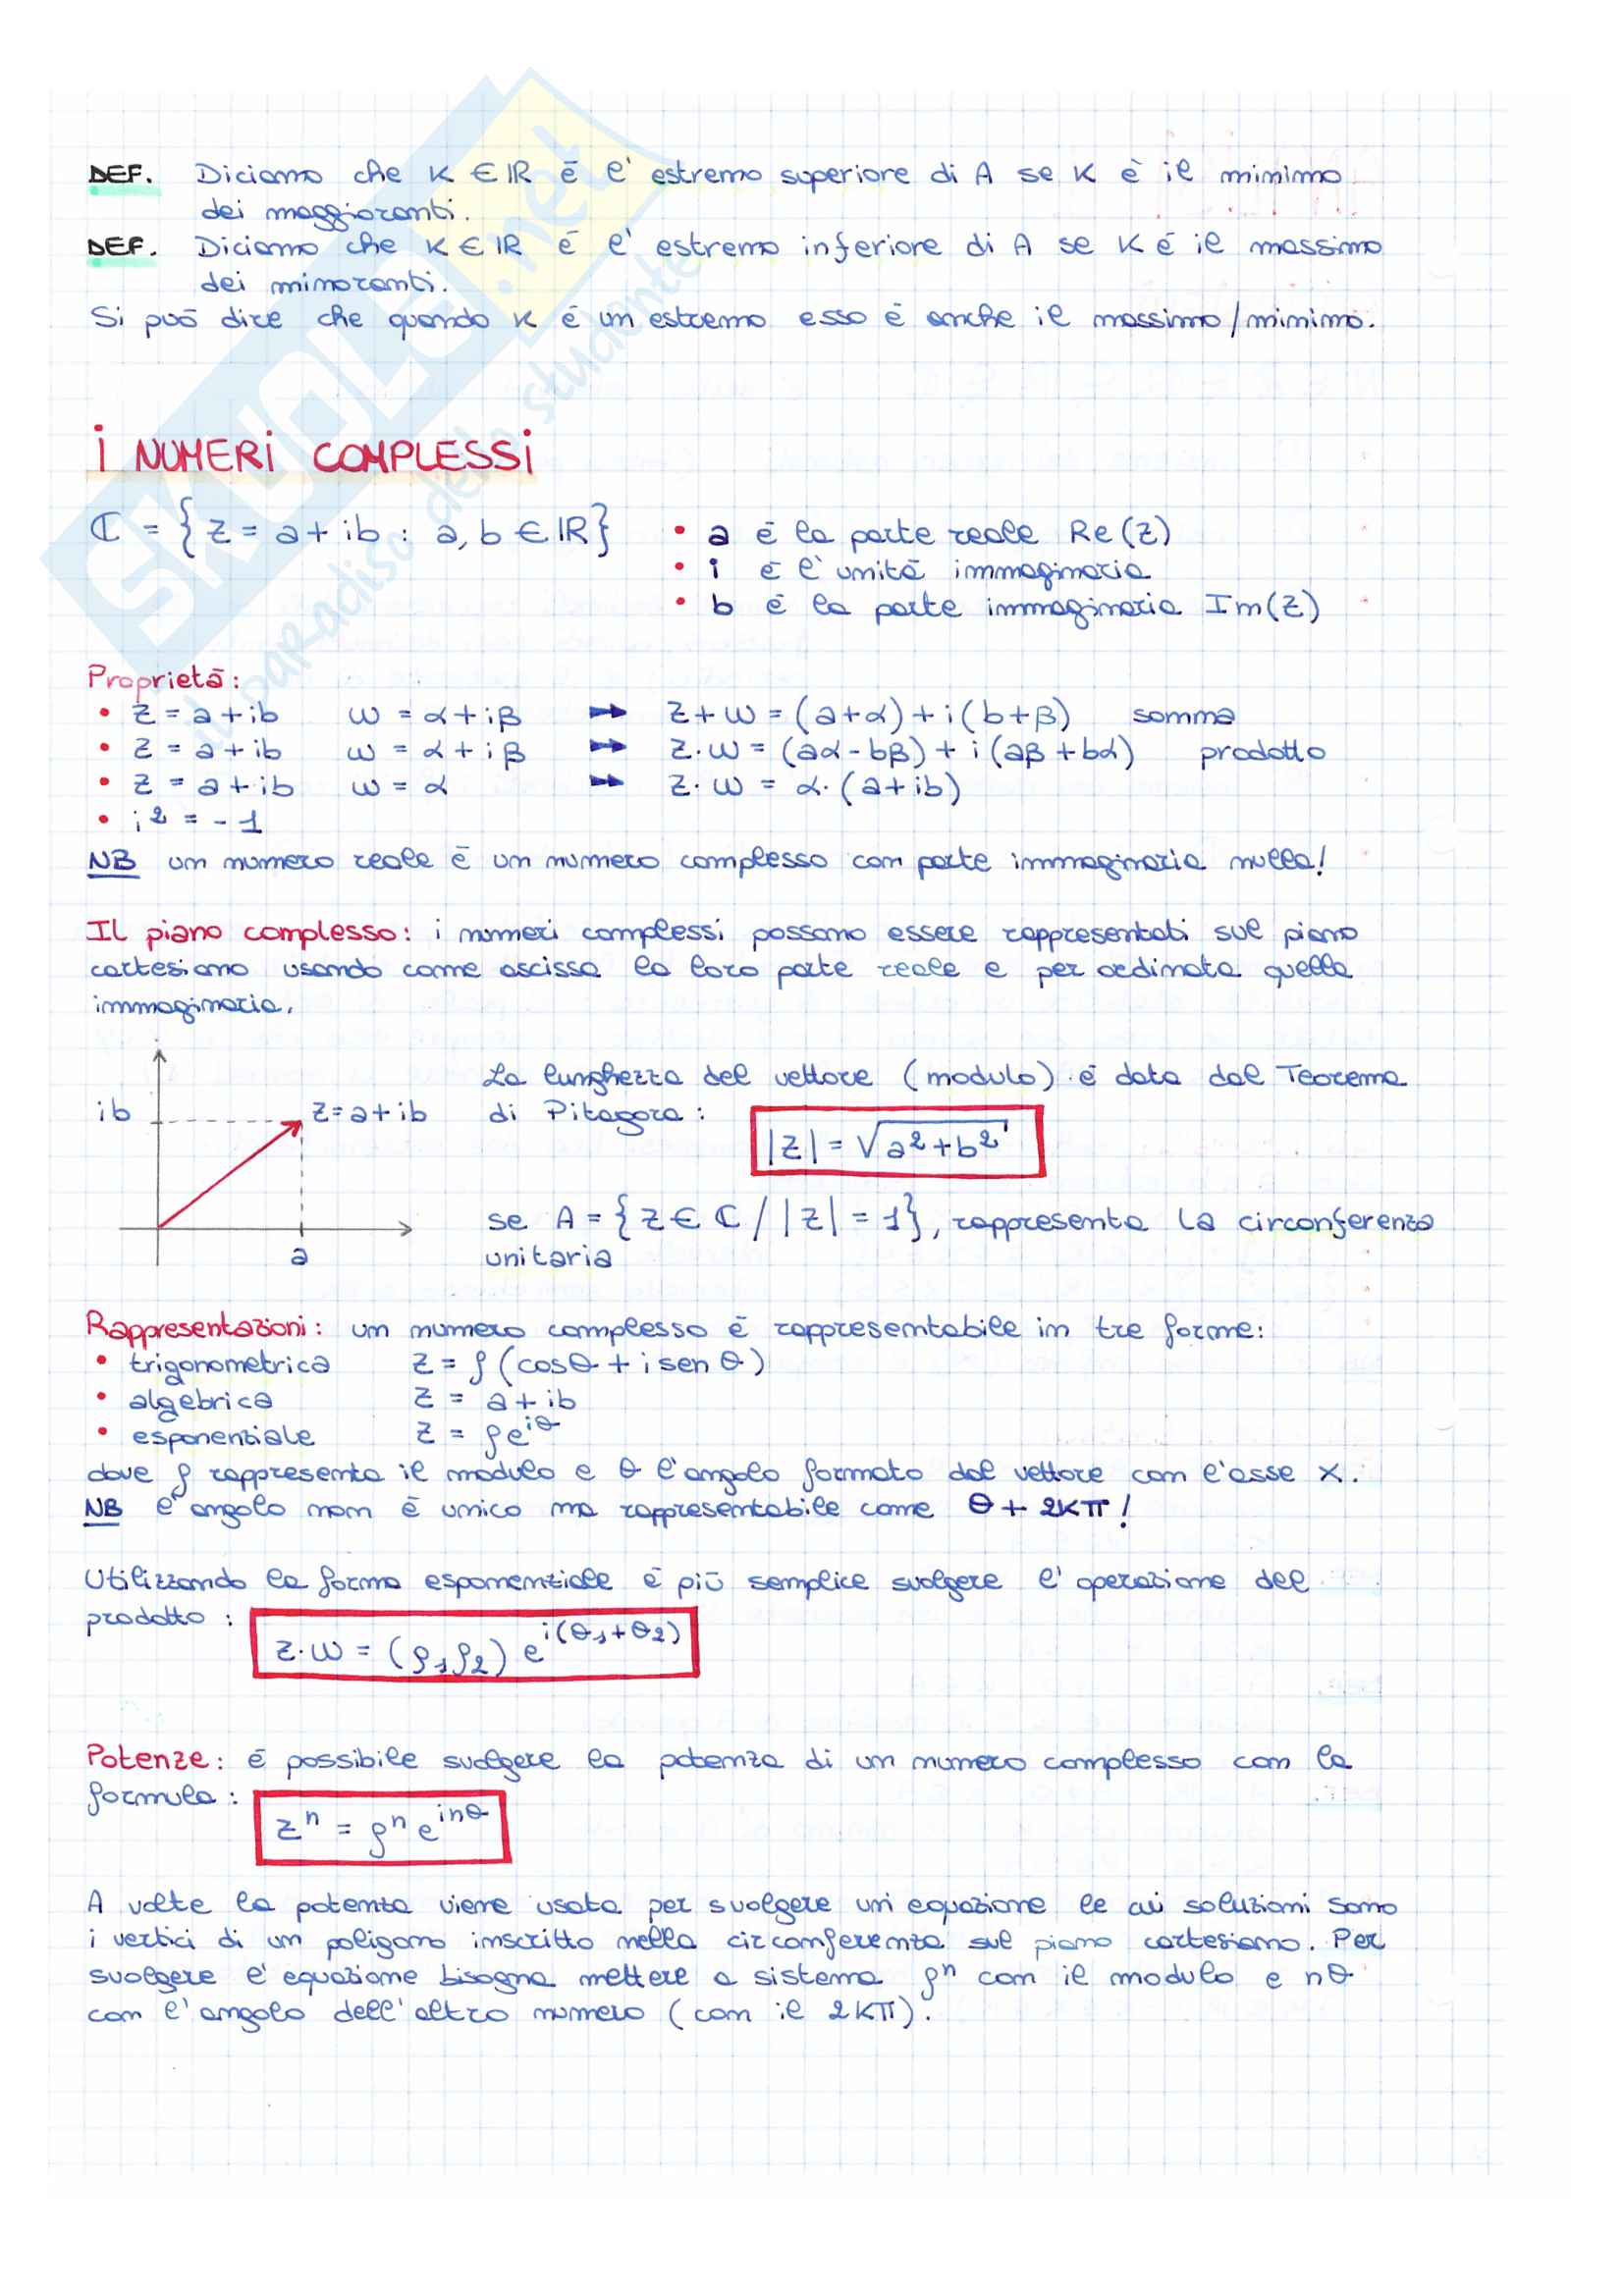 DEF. Diciamo che K ∈ ℝ é l' estremo superiore di A se K è il minimo
dei maggioranti.
DEF. Diciamo che K ∈ ℝ é l' estremo inferiore di A se K é il massimo
dei minoranti.
Si può dire che quando K é un estremo esso é anche il massimo/minimo.
i NUMERi COMPLESSi
ℂ = { z = a + ib : a, b ∈ ℝ }
• a é la parte reale Re(z)
• i é l' unitá immaginaria
• b é la parte immaginaria Im(z)
Proprietá:
• z = a + ib ω = α + iβ ➡ z + ω = (a+α) + i(b+β) somma
• z = a + ib ω = α + iβ ➡ z·ω = (aα - bβ) + i(aβ + bα) prodotto
• z = a + ib ω = α ➡ z·ω = α·(a+ib)
• i² = -1
NB un numero reale é un numero complesso con parte immaginaria nulla!
Il piano complesso: i numeri complessi possono essere rappresentati sul piano
cartesiano usando come ascissa la loro parte reale e per ordinata quella
immaginaria.
ib
z=a+ib
a
La lunghezza del vettore (modulo) é data dal Teorema
di Pitagora:
|z| = √a²+b²
se A = { z ∈ ℂ / |z| = 1 }, rappresenta la circonferenza
unitaria
Rappresentazioni: un numero complesso é rappresentabile in tre forme:
• trigonometrica z = ρ (cosθ + i sen θ)
• algebrica z = a + ib
• esponenziale z = ρe^{iθ}
dove ρ rappresenta il modulo e θ l'angolo formato dal vettore con l'asse x.
NB l' angolo non é unico ma rappresentabile come θ + 2Kπ!
Utilizzando la forma esponenziale é più semplice svolgere l' operazione del
prodotto :
z·ω = (ρ₁ρ₂) e^{i(θ₁+θ₂)}
Potenze: é possibile svolgere la potenza di un numero complesso con la
formula :
zⁿ = ρⁿ e^{inθ}
A volte la potenza viene usata per svolgere un' equazione le cui soluzioni sono
i vertici di un poligono inscritto nella circonferenza sul piano cartesiano. Per
svolgere l' equazione bisogna mettere a sistema ρⁿ con il modulo e nθ
con l' angolo dell'altro numero (con il 2Kπ).
SKUOLA.net
il paradiso dello studente